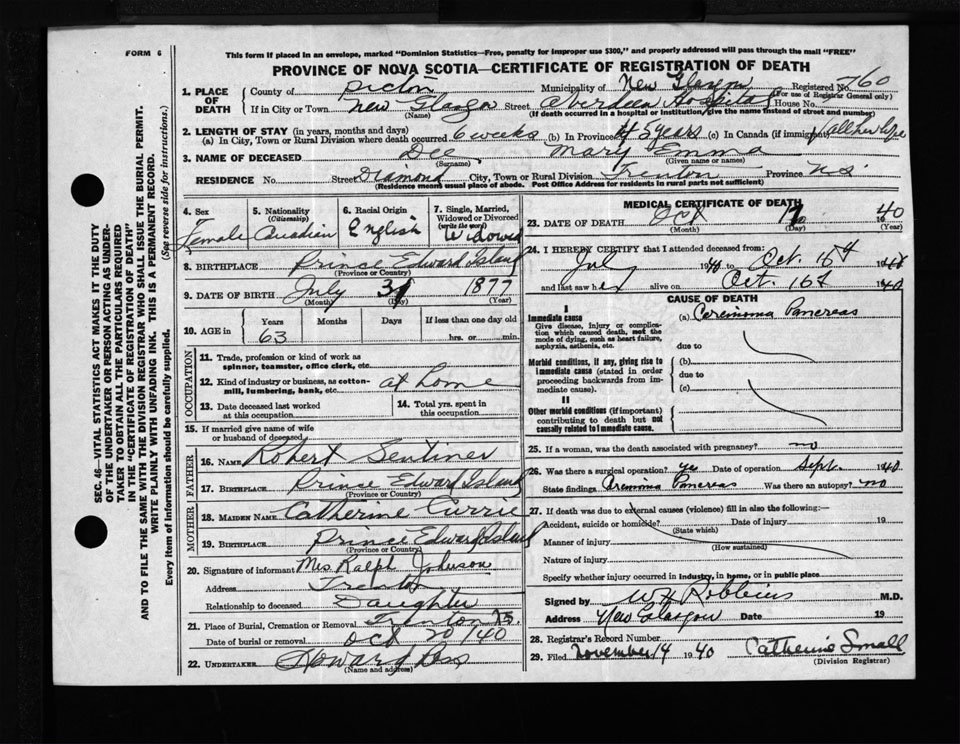 FORM 6
This form if placed in an envelope, marked "Dominion Statistics—Free, penalty for improper use $300," and properly addressed will pass through the mail "FREE"
PROVINCE OF NOVA SCOTIA—CERTIFICATE OF REGISTRATION OF DEATH
SEC. 46—VITAL STATISTICS ACT MAKES IT THE DUTY
OF THE UNDERTAKER OR PERSON ACTING AS UNDER-
TAKER TO OBTAIN ALL THE PARTICULARS REQUIRED
IN THE "CERTIFICATE OF REGISTRATION OF DEATH"
AND TO FILE THE SAME WITH THE DIVISION REGISTRAR WHO SHALL ISSUE THE BURIAL PERMIT.
WRITE PLAINLY WITH UNFADING INK. THIS IS A PERMANENT RECORD.
Every item of information should be carefully supplied. (See reverse side for instructions.)
1. PLACE OF DEATH County of Pictou Municipality of New Glasgow Registered No. 760
(For use of Registrar General only)
If in City or Town New Glasgow Street Aberdeen Hospital House No.
(Name) (If death occurred in a hospital or institution, give the name instead of street and number)
2. LENGTH OF STAY (in years, months and days)
(a) In City, Town or Rural Division where death occurred 6 weeks (b) In Province 45 years (c) In Canada (if immigrant) all her life
3. NAME OF DECEASED Dee Mary Emma
(Surname) (Given name or names)
RESIDENCE No. Street Diamond City, Town or Rural Division Trenton Province N.S.
(Residence means usual place of abode. Post Office Address for residents in rural parts not sufficient)
4. Sex Female
5. Nationality (Citizenship) Canadian
6. Racial Origin English
7. Single, Married, Widowed or Divorced (write the word) Widowed
8. BIRTHPLACE Prince Edward Island
(Province or Country)
9. DATE OF BIRTH July 31 1877
(Month) (Day) (Year)
10. AGE in Years 63 Months Days If less than one day old
hrs. or min.
OCCUPATION
11. Trade, profession or kind of work as spinner, teamster, office clerk, etc.
12. Kind of industry or business, as cotton-mill, lumbering, bank, etc. at home
13. Date deceased last worked at this occupation
14. Total yrs. spent in this occupation
15. If married give name of wife or husband of deceased
FATHER
16. NAME Robert Sentiner
17. BIRTHPLACE Prince Edward Island
(Province or Country)
MOTHER
18. MAIDEN NAME Catherine Currie
19. BIRTHPLACE Prince Edward Island
(Province or Country)
20. Signature of informant Mrs Ralph Johnson
Address Trenton
Relationship to deceased Daughter
21. Place of Burial, Cremation or Removal Trenton N.S.
Date of burial or removal Oct 20/40
22. UNDERTAKER
(Name and address)
MEDICAL CERTIFICATE OF DEATH
23. DATE OF DEATH Oct 1940
(Month) (Day) (Year)
24. I HEREBY CERTIFY that I attended deceased from:
Jul 1940 to Oct. 16th 1940
and last saw her alive on Oct. 16th 1940
CAUSE OF DEATH
I
Immediate cause
Give disease, injury or complication which caused death, not the mode of dying, such as heart failure, asphyxia, asthenia, etc.
(a) Pancreas
due to
Morbid conditions, if any, giving rise to immediate cause (stated in order proceeding backwards from immediate cause).
(b)
due to
(c)
II
Other morbid conditions (if important) contributing to death but not causally related to immediate cause.
25. If a woman, was the death associated with pregnancy? no
26. Was there a surgical operation? yes Date of operation Sept. 1940
State findings Pancreas Was there an autopsy? no
27. If death was due to external causes (violence) fill in also the following:—
Accident, suicide or homicide? Date of injury 19
(State which)
Manner of injury
(How sustained)
Nature of injury
Specify whether injury occurred in industry, in home, or in public place
Signed by W H Robbins M.D.
Address New Glasgow Date 19
28. Registrar's Record Number
29. Filed November 14 1940 Catherine Small
(Division Registrar)